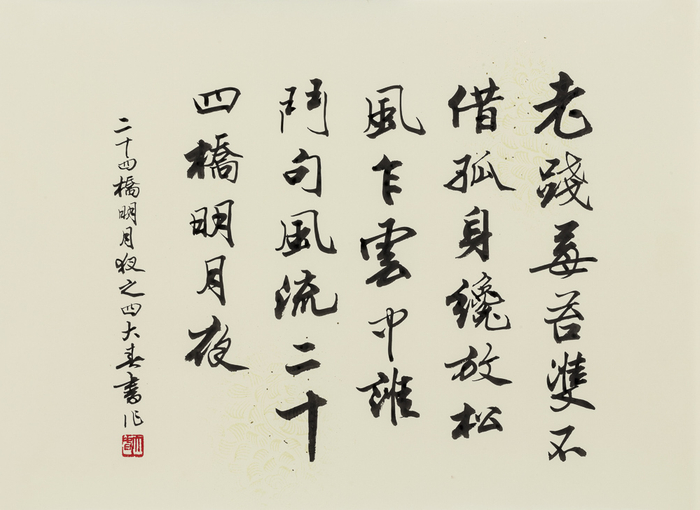 老踐莓苔雙不
借孤身纔放松
風乍雲中誰
鬥句風流二十
四橋明月夜
二十四橋明月夜之四大春書作